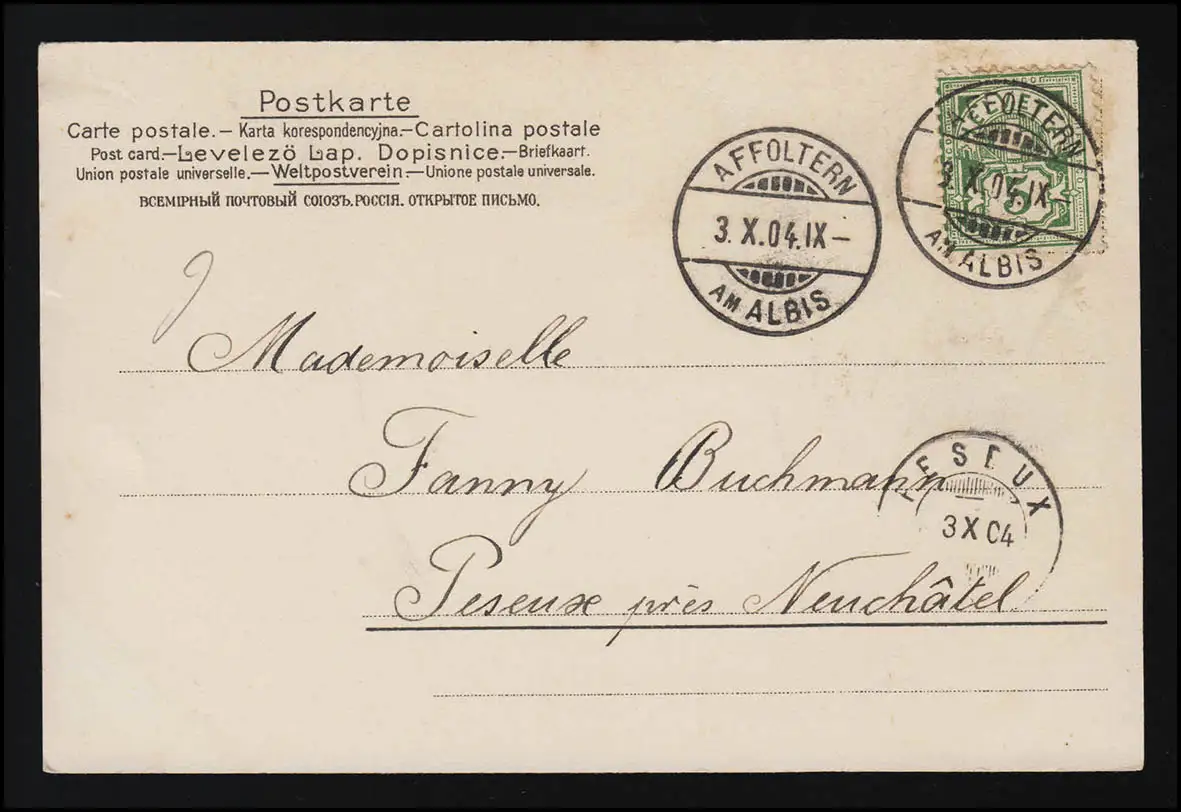 Postkarte
Carte postale.— Karta korespondencyjna.—Cartolina postale
Post card.—Levelezö Lap. Dopisnice.—Briefkaart.
Union postale universelle.—Weltpostverein.—Unione postale universale.
ВСЕМІРНЫЙ ПОЧТОВЫЙ СОЮЗЪ.РОССІЯ. ОТКРЫТОЕ ПИСЬМО.
AFFOLTERN
3. X.04.IX—
AM ALBIS
AFFOLTERN
3. X.04.IX—
AM ALBIS
5
Mademoiselle
Fanny Buchmann
PESEUX
3 X 04
Peseux près Neuchâtel